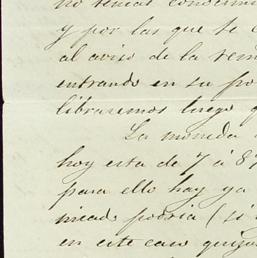 no tenias conocimi
y por las que se c
al aviso de la rem
entrando en su po
libraremos luego q
La moneda
hoy esta de 7 á 8%
para ello hay ya
nicad. podria (si
en este caso quiza